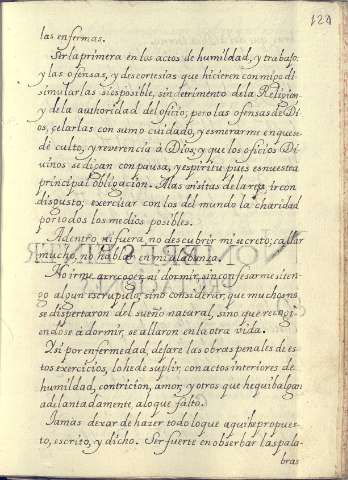 129
las enfermas.
Ser la primera en los actos de humildad, y trabajo:
y las ofensas, y descortesias que hicieren conmigo di-
simularlas si es posible, sin detrimento de la Religion
y de la authoridad del oficio; pero las ofensas de Di-
os, çelarlas con sumo cuidado, y esmerarme en que se
dè culto, y reverencia à Dios, y que los oficios Di-
vinos se digan con pausa, y espiritu pues es nuestra
principal obligaçion. A las visitas de la reja ir con
disgusto; exercitar con los del mundo la charidad
por todos los medios posibles.
Adentro, ni fuera, no descubrir mi secreto; callar
mucho, no hablar en mi alabanza.
No irme a recoger, ni dormir, sin confesarme si ten-
go algun escrupulo; sino considerar, que muchos no
se dispertaron del sueño natural, sino que recogi-
endose à dormir, se allaron en la otra vida.
Y si por enfermedad, dejare las obras penales de es-
tos exercicios, lo he de suplir, con actos interiores de
humildad, contricion, amor, y otros que hequibalgan
adelantadamente, a lo que falto.
Jamas dexar de hazer todo lo que aqui he propues-
to, escrito, y dicho. Ser fuerte en obserbar las pala-
bras